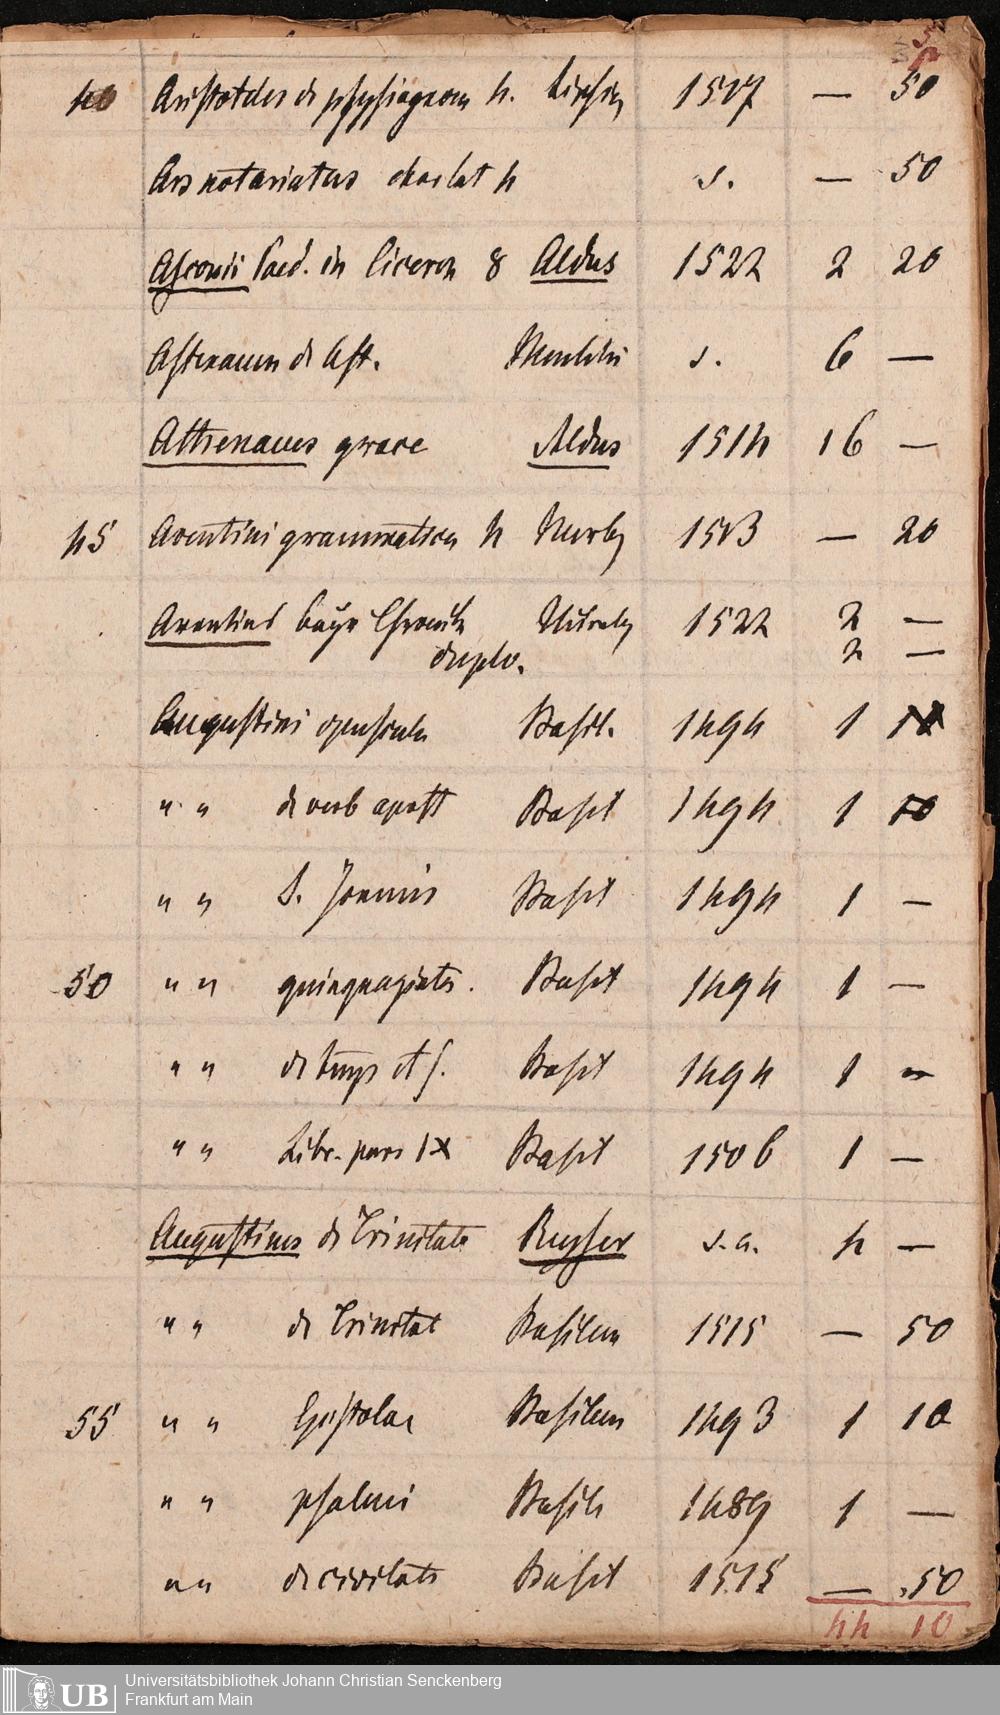 5
40 Aristoteles de physiognom 4. Leipzig 1517 — 50
Ars notariatus choclat 4 s. — 50
Asconii Paed. in Ciceron 8 Aldus 1522 2 20
Astexanus de Ast. Mentelin s. 6 —
Athenaeus graece Aldus 1514 16 —
45 Aventini grammatica 4 Nurbg 1513 — 20
Aventini bayr Chronik Nürnbg 1522 2 —
duplo. 2 —
Augustini opuscula Basil. 1494 1
" " de verb apost Basil 1494 1
" " S. Joannis Basil 1494 1 —
50 " " quinquagints. Basil 1494 1 —
" " Basil 1494 1 —
" " Libr. pars IX Basil 1506 1 —
Augustinus de Trinitate Reyser s.a. 4 —
" " de Trinitat Basileae 1515 — 50
55 " " Epistolae Basileae 1493 1 10
" " psalmi Basile 1489 1 —
" " de civitate Basil 1515 — 50
44 10
UB Universitätsbibliothek Johann Christian Senckenberg
Frankfurt am Main